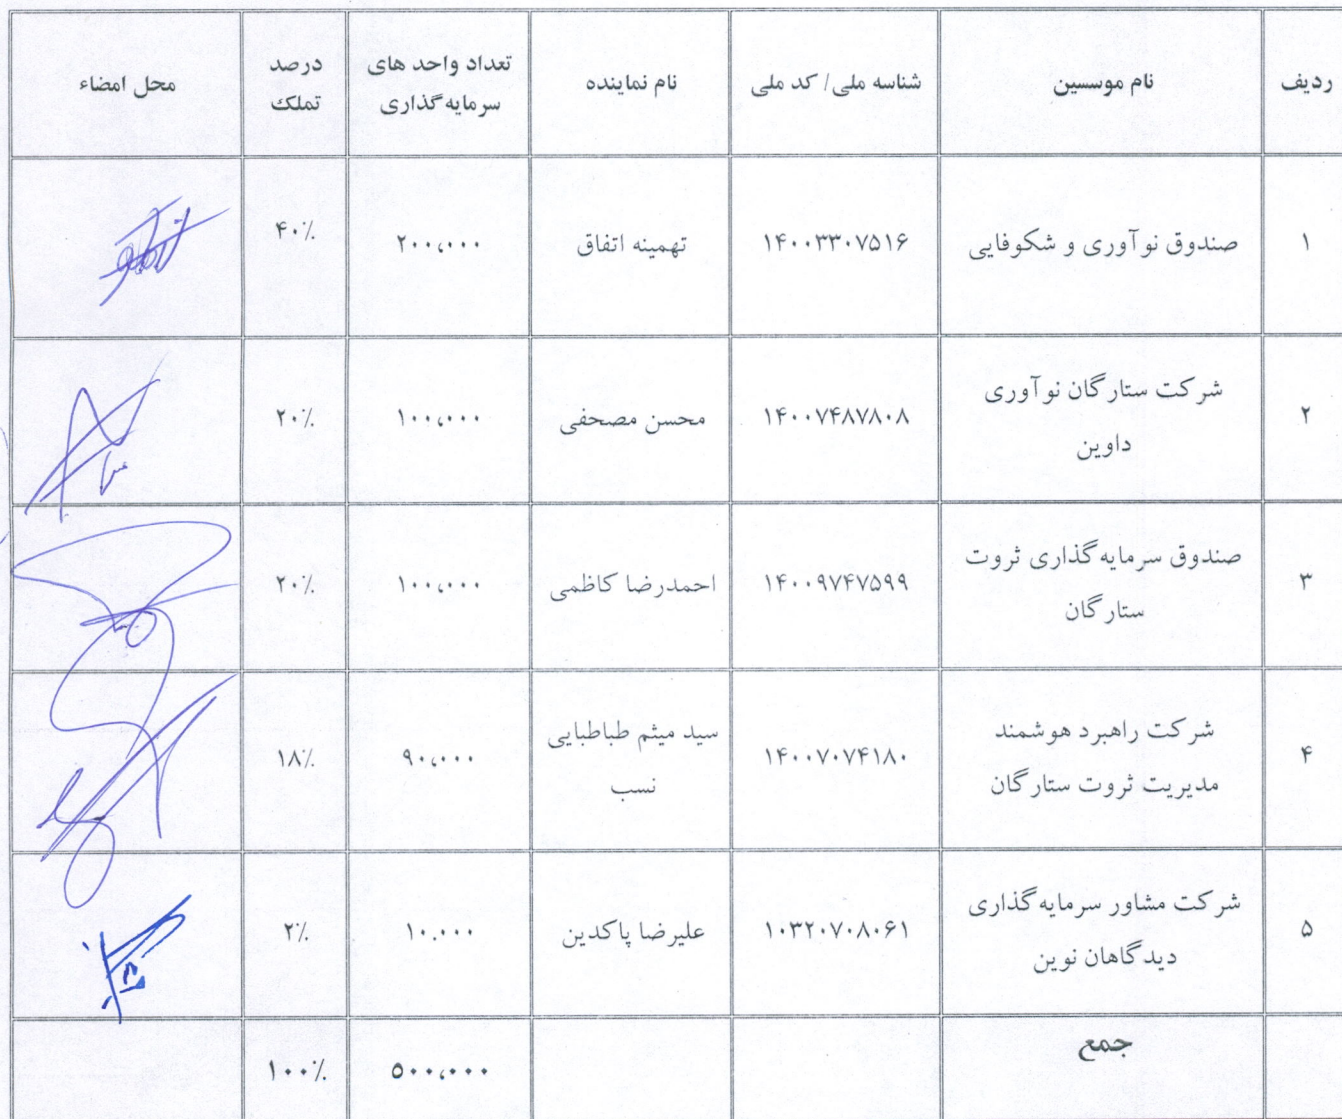 ردیف
نام موسسین
شناسه ملی/ کد ملی
نام نماینده
تعداد واحد های
سرمایه گذاری
درصد
تملک
محل امضاء
۱
صندوق نوآوری و شکوفایی
۱۴۰۰۳۳۰۷۵۱۶
تهمینه اتفاق
۲۰۰،۰۰۰
۴۰٪
۲
شرکت ستارگان نوآوری
داوین
۱۴۰۰۷۴۸۷۸۰۸
محسن مصحفی
۱۰۰،۰۰۰
۲۰٪
۳
صندوق سرمایه گذاری ثروت
ستارگان
۱۴۰۰۹۷۴۷۵۹۹
احمدرضا کاظمی
۱۰۰،۰۰۰
۲۰٪
۴
شرکت راهبرد هوشمند
مدیریت ثروت ستارگان
۱۴۰۰۷۰۷۴۱۸۰
سید میثم طباطبایی
نسب
۹۰،۰۰۰
۱۸٪
۵
شرکت مشاور سرمایه گذاری
دیدگاهان نوین
۱۰۳۲۰۷۰۸۰۶۱
علیرضا پاکدین
۱۰.۰۰۰
۲٪
جمع
۵۰۰،۰۰۰
۱۰۰٪